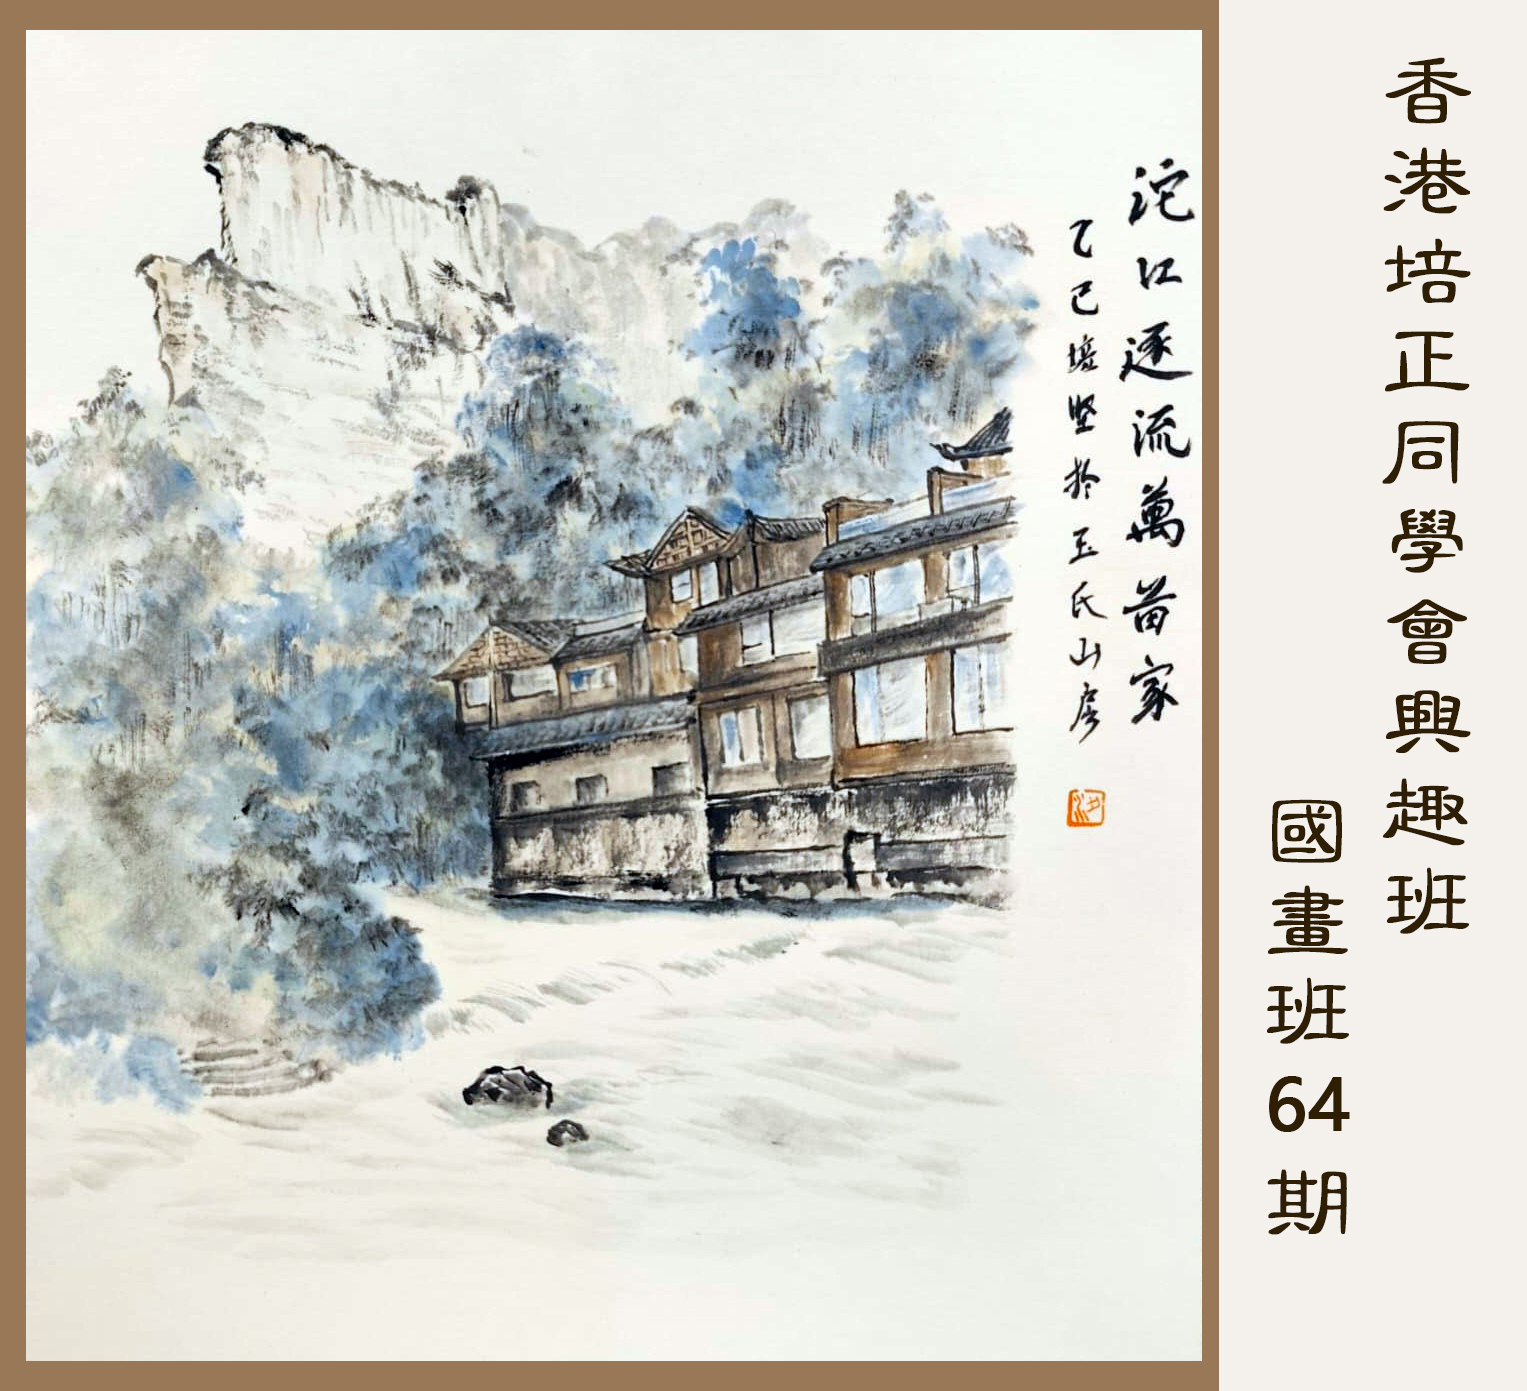 香港培正同學會興趣班
國畫班64期
沱江逐流萬苗家
乙巳培坚於玉氏山房